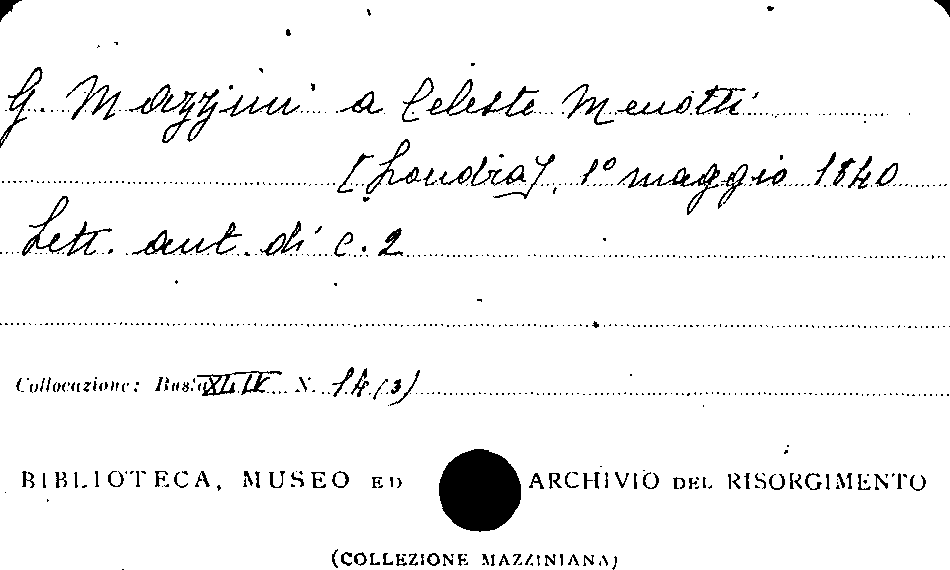 G. Mazzini a Celeste Menotti
[Londra], 1° maggio 1840
Lett. aut. di c. 2
Collocazione: Busta XLIV N. 14 (3)
BIBLIOTECA, MUSEO ED ARCHIVIO DEL RISORGIMENTO
(COLLEZIONE MAZZINIANA)